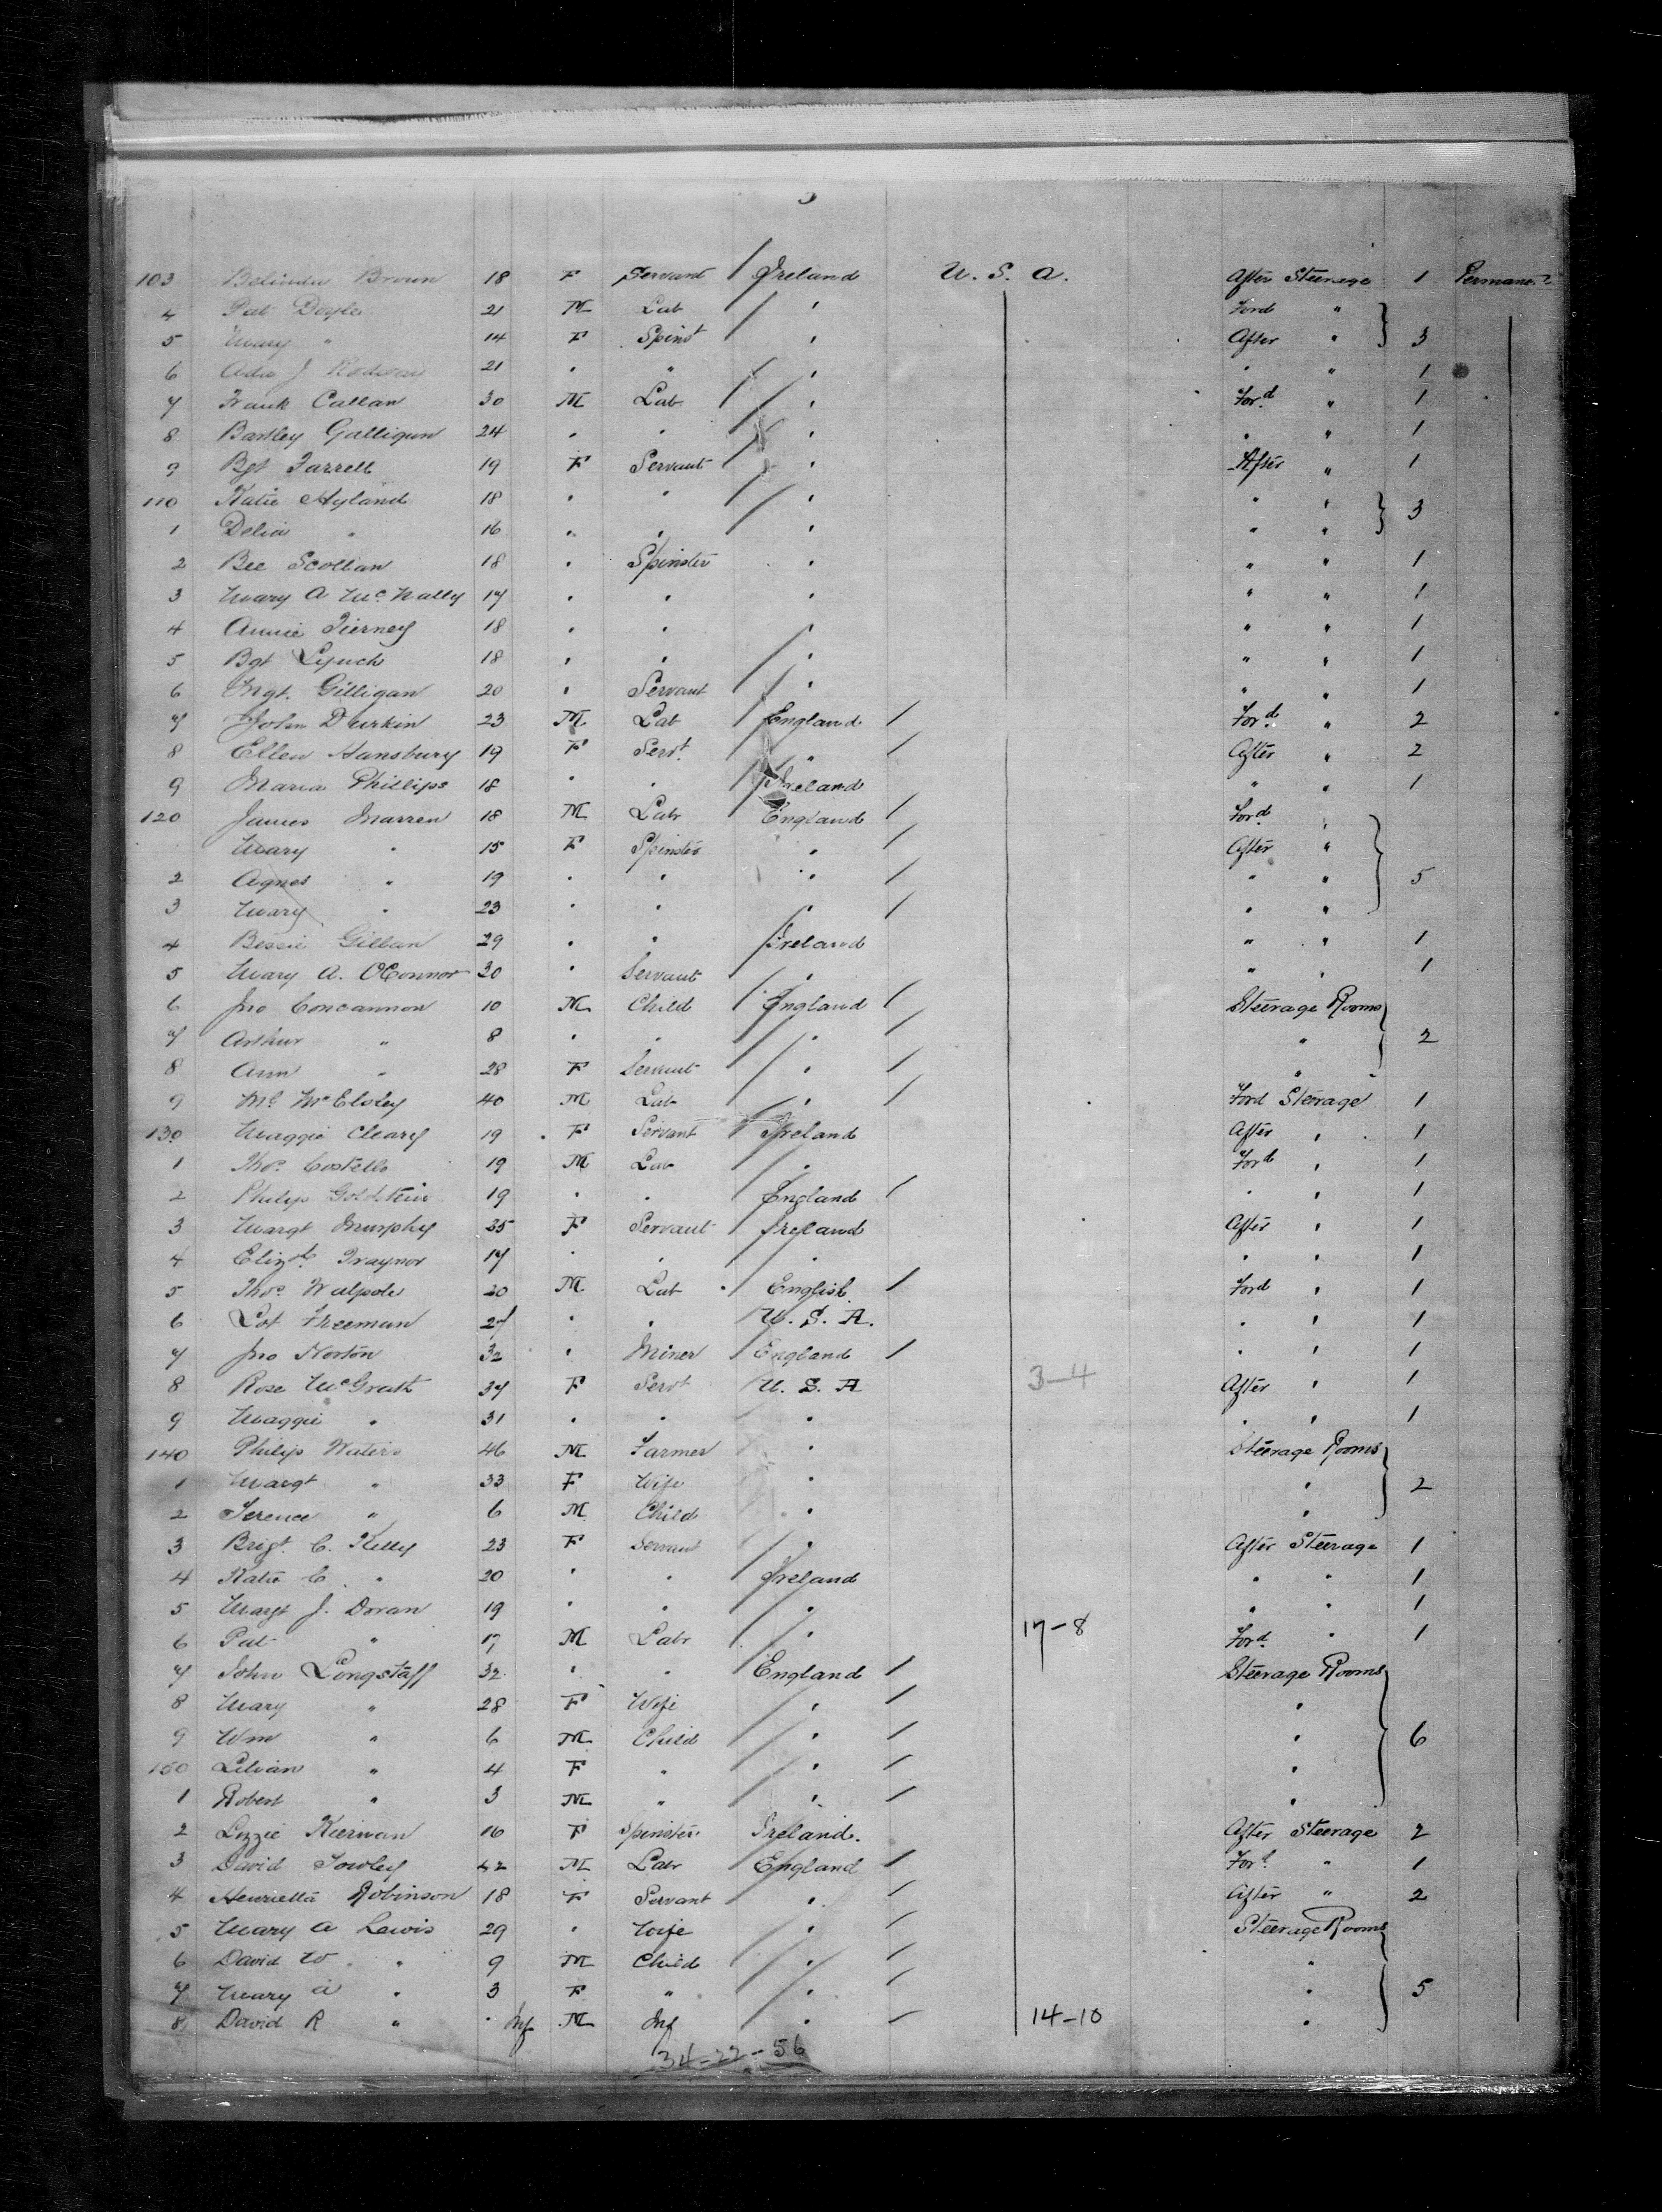 3
103 Belinda Brown 18 F Servant / Ireland U. S. A. After Steerage 1 Permanent
4 Pat Doyle 21 M Lab / " Ford "
5 Mary " 14 F Spinst / " After " } 3
6 Ada J 21 " " / " " " 1
7 Frank Callan 30 M Lab / " Ford " 1
8 Bartley Galligan 24 " " / " " " 1
9 Bgt Farrell 19 F Servant / " After " 1
110 Katie Hyland 18 " " / " " "
1 Delia " 16 " " / " " " } 3
2 Bee Scollan 18 " Spinster " " " 1
3 Mary A McNally 17 " " " " " 1
4 Annie Tierney 18 " " / " " " 1
5 Bgt Lynch 18 " " / " " " 1
6 Mgt. Gilligan 20 " Servant / " " " 1
7 John Durkin 23 M Lab / England / Ford " 2
8 Ellen Hansbury 19 F Servt / " / After " 2
9 Maria Phillips 18 " " / Ireland " " 1
120 James Marren 18 M Labr / England / Ford "
Mary " 15 F Spinster " / After "
2 Agnes " 19 " " " / " " } 5
3 Mary " 23 " " / " / " "
4 Bessie Gillan 29 " " / Ireland " " 1
5 Mary A. OConnor 30 " Servant / " " " 1
6 Jno Concannon 10 M Child / England / Steerage Rooms
7 Arthur " 8 " " / " / " } 2
8 Ann " 28 F Servant / " / "
9 Ml McElsley 40 M Lab / " / Ford Steerage 1
130 Maggie Cleary 19 F Servant / Ireland After " 1
1 Thos. Costello 19 M Lab / " Ford " 1
2 Philip Goldstein 19 " " / England / " " 1
3 Margt Murphy 35 F Servant / Ireland After " 1
4 Elizth Traynor 17 " " / " " " 1
5 Thos. Walpole 30 M Lab / English / Ford " 1
6 Lot Freeman 27 " " / U. S. A. " " 1
7 Jno Norton 32 " Miner / England / " " 1
8 Rose McGrath 37 F Servt / U. S. A 3-4 After " 1
9 Maggie " 31 " " " " " 1
140 Philip Waters 46 M Farmer " Steerage Rooms
1 Margt " 33 F Wife " " } 2
2 Terence " 6 M Child " "
3 Brigt. C. Kelly 23 F Servant / " After Steerage 1
4 Katie C " 20 " " / Ireland " " 1
5 Margt J. Doran 19 " " / " " " 1
6 Pat " 17 M Labr / " 17-8 Ford " 1
7 John Longstaff 32 " " England / Steerage Rooms
8 Mary " 28 F Wife / " / "
9 Wm " 6 M Child / " / " } 6
150 Lilian " 4 F " / " / "
1 Robert " 3 M " / " / "
2 Lizzie Kiernan 16 F Spinster Ireland. After Steerage 2
3 David Towley 42 M Labr England / Ford " 1
4 Henrietta Robinson 18 F Servant " / After " 2
5 Mary A Lewis 29 " Wife / " / Steerage Rooms
6 David W " 9 M Child / " / "
7 Mary A " 3 F " / " / " } 5
8 David R " Inf M Inf " / 14-10 "
34-22-56